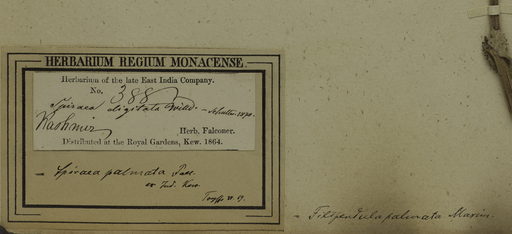 HERBARIUM REGIUM MONACENSE
Herbarium of the late East India Company.
No. 388
Spiraea digitata Willd.
Kashmir
Herb. Falconer.
Distributed at the Royal Gardens, Kew. 1864.
— Spiraea palmata Pall.
Ind. Kew.
— Filipendula palmata Maxim.